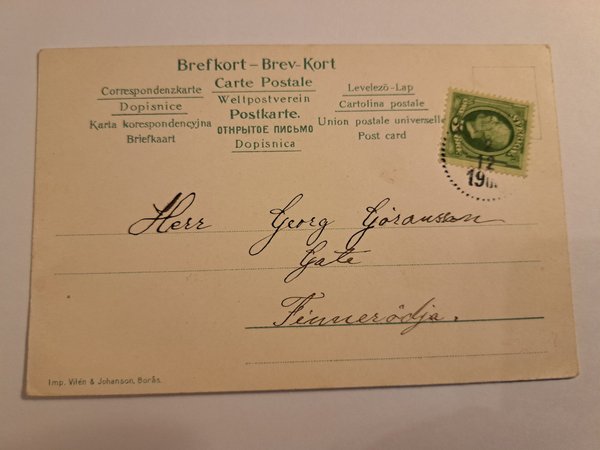 Brefkort – Brev-Kort
Carte Postale
Correspondenzkarte
Weltpostverein
Levelező-Lap
Dopisnice
Postkarte.
Cartolina postale
Karta korespondencyjna
ОТКРЫТОЕ ПИСЬМО
Union postale universelle
Briefkaart
Dopisnica
Post card
SVERIGE
12
Herr Georg Göransson
Gate
Finnerödja.
Imp. Vilén & Johanson, Borås.